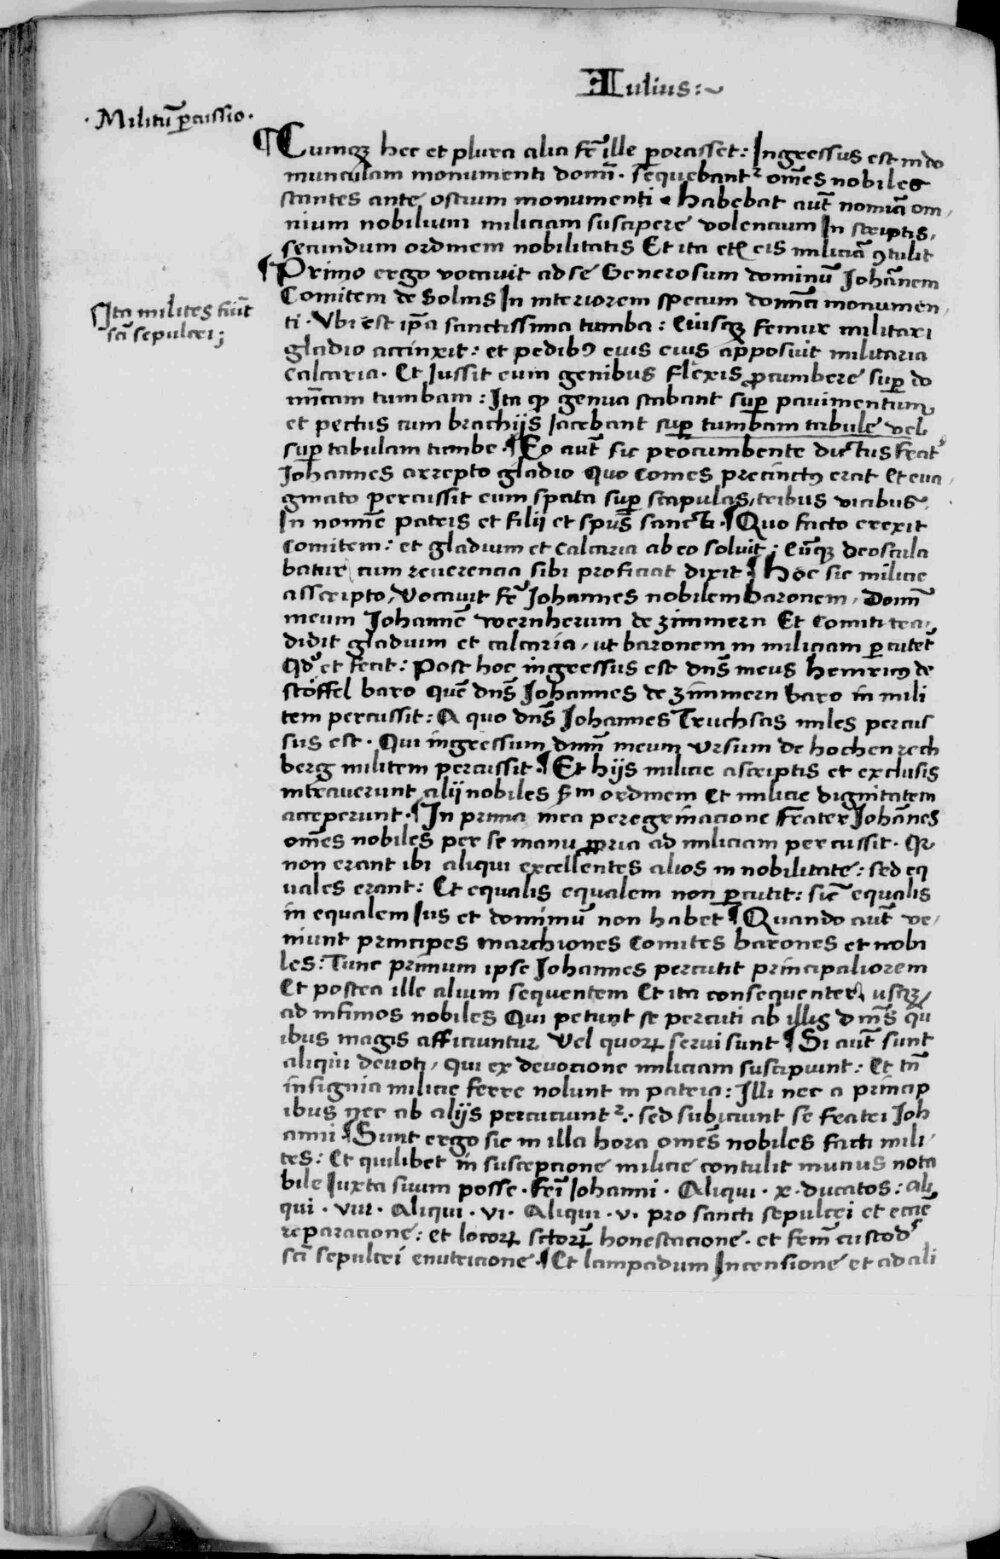 Iulius:~
· Militū ꝑcussio ·
¶ Cumqꝫ hec et plura alia fr̄ ille ꝑorasset: Ingressus est in do
munculam monumenti domī · sequebant᷑ om̄es nobiles
stantes ante ostium monumenti · habebat aut̄ nomīa om/
nium nobilium miliciam suscipere volencium In scriptis,
secundum ordinem nobilitatis Et ita eciā eis miliciā ꝯtulit
¶ Primo ergo vocavit ad se Generosum dominū Johan̄em
Comitem de Solms In interiorem specum domīci monumen/
¶ Ita milites fiūt
sc̄i sepulcri;
ti · Vbi est ip̄a sanctissima tumba: Cuiusqꝫ femur militari
gladio accinxit: et pedibꝰ eius eius apposuit militaria
calcaria · Et Jussit eum genibus flexis ꝓcumbere suꝑ do
mīcam tumbam: Ita qꝫ genua stabant suꝑ pavimentum,
et pectus cum brachijs Jacebant suꝑ tumbam tabule vel
suꝑ tabulam tumbe · ¶ Eo aut̄ sic procumbente dictus frat᷑
Johannes arrepto gladio quo comes precinctꝰ erat Et eva/
ginato ꝑcussit eum spata suꝑ scapulas, tribus vicibus,
In nomīe patris et filij et spūs sancti · ¶ Quo facto erexit
comitem: et gladium et calcaria ab eo solvit; Eūqꝫ deoscula
batur cum reuerencia sibi proficiat dixit ¶ Hoc sic milicie
asscripto, Vocavit fr̄ Johannes nobilem baronem, Domī
meum Johannē wernherum de zimmern Et comiti tra/
didit gladium et calcaria, ut baronem in miliciam ꝑcuteret
Qd̄ et fecit: Post hoc ingressus est dn̄s meus heinricꝰ de
stöffel baro quē dn̄s Johannes de zimmern baro in mili
tem percussit: A quo dn̄s Johannes Truchsas miles percus
sus est · Qui ingressum dnm̄ meum Vrsum de hochenrech
berg militem ꝑcussit ¶ Et hijs milicie ascriptis et exclusis
intraverunt alij nobiles s̄m ordinem Et milicie dignitatem
acceperunt · ¶ In prima mea peregrinacione frater Johan̄es
om̄es nobiles per se manu ꝓpria ad miliciam percussit · Qr
non erant ibi aliqui excellentes alios in nobilitate: sed eq
uales erant: Et equalis equalem non ꝑcutit: sic̄ equalis
in equalem Ius et dominiū non habet ¶ Quando aut̄ ve/
niunt principes marchiones Comites barones et nobi
les: Tunc primum ipse Johannes percutit principaliorem
Et postea ille alium sequentem Et ita consequenter, usqꝫ
ad infimos nobiles Qui petunt se percuti ab illis dnīs qu̅
ibus magis afficiuntur Vel quorꝝ servi sunt ¶ Si aut̄ sunt
aliqui devoti, qui ex devocione miliciam suscipiunt: Et tn̄
insignia milicie ferre nolunt in patria: Illi nec a princip
ibus nec ab alijs percuciunt᷑: sed subiciunt se fratri Joh
anni ¶ Sunt ergo sic in illa hora om̄es nobiles facti mili/
tes: Et quilibet in suscepcione milicie contulit munus nota
bile Juxta suum posse · frī Johanni · Aliqui · x · ducatos: ali
qui · viii · Aliqui · vi · Aliqui · v · pro sancti sepulcri et eccīe
reparacione: et locorꝝ sc̄torꝝ honestacione · et frm̄ custod᷑
sc̄i sepulcri enutricione · ¶ Et lampadum Incensione et ad ali